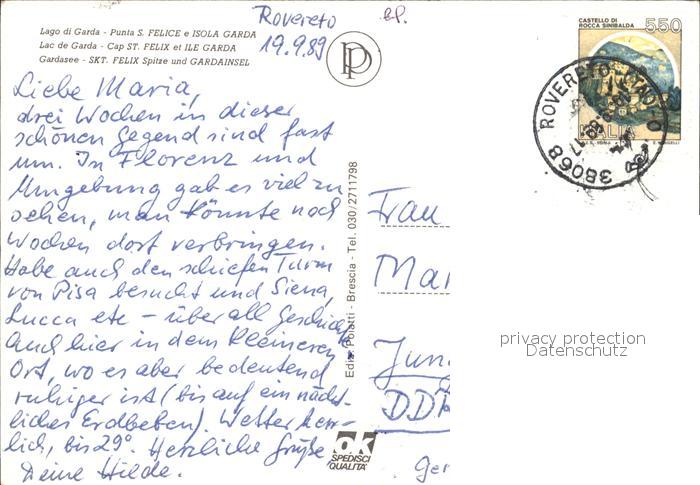 Lago di Garda - Punta S. FELICE e ISOLA GARDA
Lac de Garda - Cap ST. FELIX et ILE GARDA
Gardasee - SKT. FELIX Spitze und GARDAINSEL
Rovereto
19.9.89
Liebe Maria,
drei Wochen in dieser
schönen Gegend sind fast
um. In Florenz und
Umgebung gab es viel zu
sehen, man könnte noch
Wochen dort verbringen.
Habe auch den schiefen Turm
von Pisa besucht und Siena,
Lucca etc - überall Geschicht
Auch hier in dem kleineren
Ort, wo es aber bedeutend
ruhiger ist (bis auf ein nächt-
liches Erdbeben). Wetter herr-
lich, bis 29°. Herzliche Grüße
Deine Hilde.
Ediz. Polatti - Brescia - Tel. 030/2711798
ok
SPEDISCI
QUALITÀ
CASTELLO DI
ROCCA SINIBALDA
550
ITALIA
38068 ROVERETO
Frau
Mar
Jung
DDR
Ger
privacy protection
Datenschutz